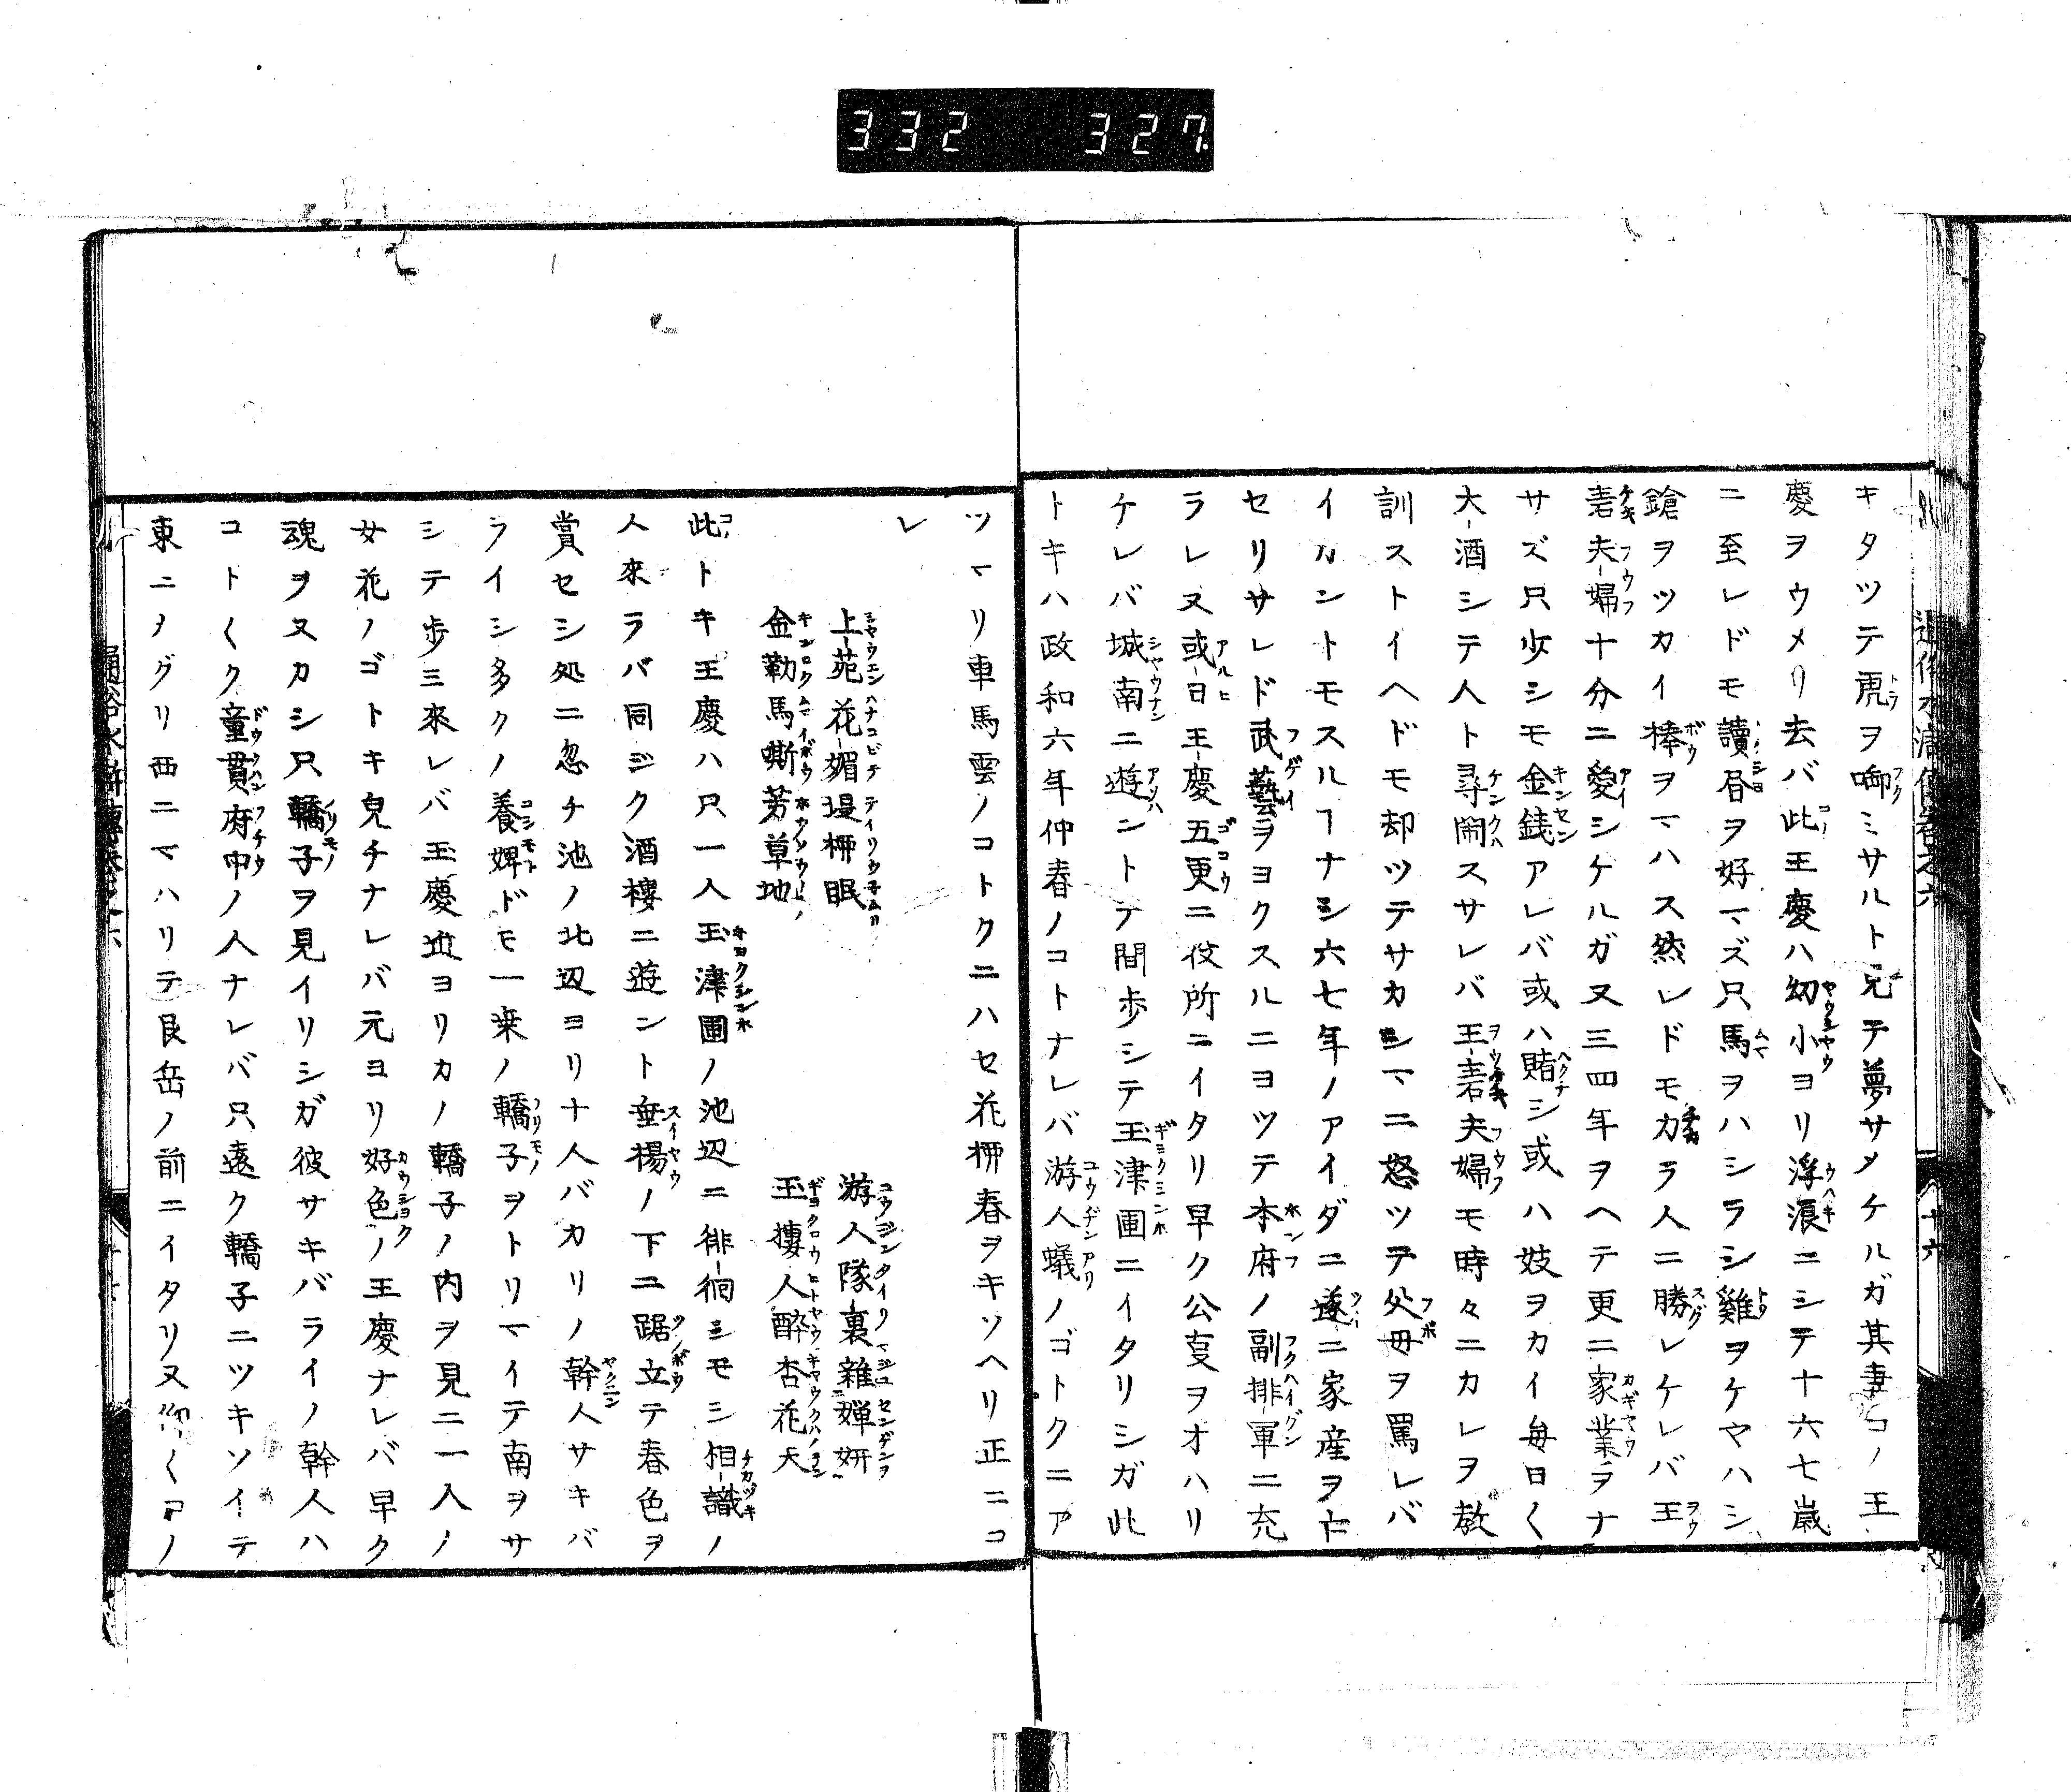 332 327
キタツテ虎ヲ啣ミサルト見テ夢サメケルガ其妻コノ王
慶ヲウメリ去バ此王慶ハ幼小ヨリ浮浪ニシテ十六七歳
ニ至レドモ讀昏ヲ好マズ只馬ヲハシラシ雞ヲケヤハシ
鎗ヲツカイ棒ヲマハス然レドモ力ラ人ニ勝レケレバ王
砉夫婦十分ニ愛シケルガ又三四年ヲヘテ更ニ家業ヲナ
サズ只少シモ金銭アレバ或ハ賭シ或ハ妓ヲカイ毎日〱
大酒シテ人ト尋閙スサレバ王砉夫婦モ時々ニカレヲ教
訓ストイヘドモ却ツテサカシマニ怒ツテ父母ヲ罵レバ
イカントモスルヿナシ六七年ノアイダニ遂ニ家産ヲ亡
セリサレド武藝ヲヨクスルニヨツテ本府ノ副排軍ニ充
ラレ又或日王慶五更ニ役所ニイタリ早ク公叓ヲオハリ
ケレバ城南ニ遊ントテ間歩シテ玉津圃ニイタリシガ此
トキハ政和六年仲春ノコトナレバ游人蟻ノゴトクニア
ツマリ車馬雲ノコトクニハセ花柳春ヲキソヘリ正ニコ
レ
上苑花媚堤柳眠 游人隊裏雜嬋妍
金勒馬嘶芳草地 玉樓人醉杏花天
此トキ王慶ハ只一人玉津圃ノ池辺ニ徘徊シモシ相識ノ
人來ラバ同ジク酒樓ニ遊ント垂楊ノ下ニ踞立テ春色ヲ
賞セシ処ニ忽チ池ノ北辺ヨリ十人バカリノ幹人サキバ
ライシ多クノ養婢ドモ一乗ノ轎子ヲトリマイテ南ヲサ
シテ歩ミ來レバ王慶近ヨリカノ轎子ノ内ヲ見ニ一人ノ
女花ノゴトキ皃チナレバ元ヨリ好色ノ王慶ナレバ早ク
魂ヲヌカシ只轎子ヲ見イリシガ彼サキバライノ幹人ハ
コト〱ク童貫府中ノ人ナレバ只遠ク轎子ニツキソイテ
東ニメグリ西ニマハリテ艮岳ノ前ニイタリ又